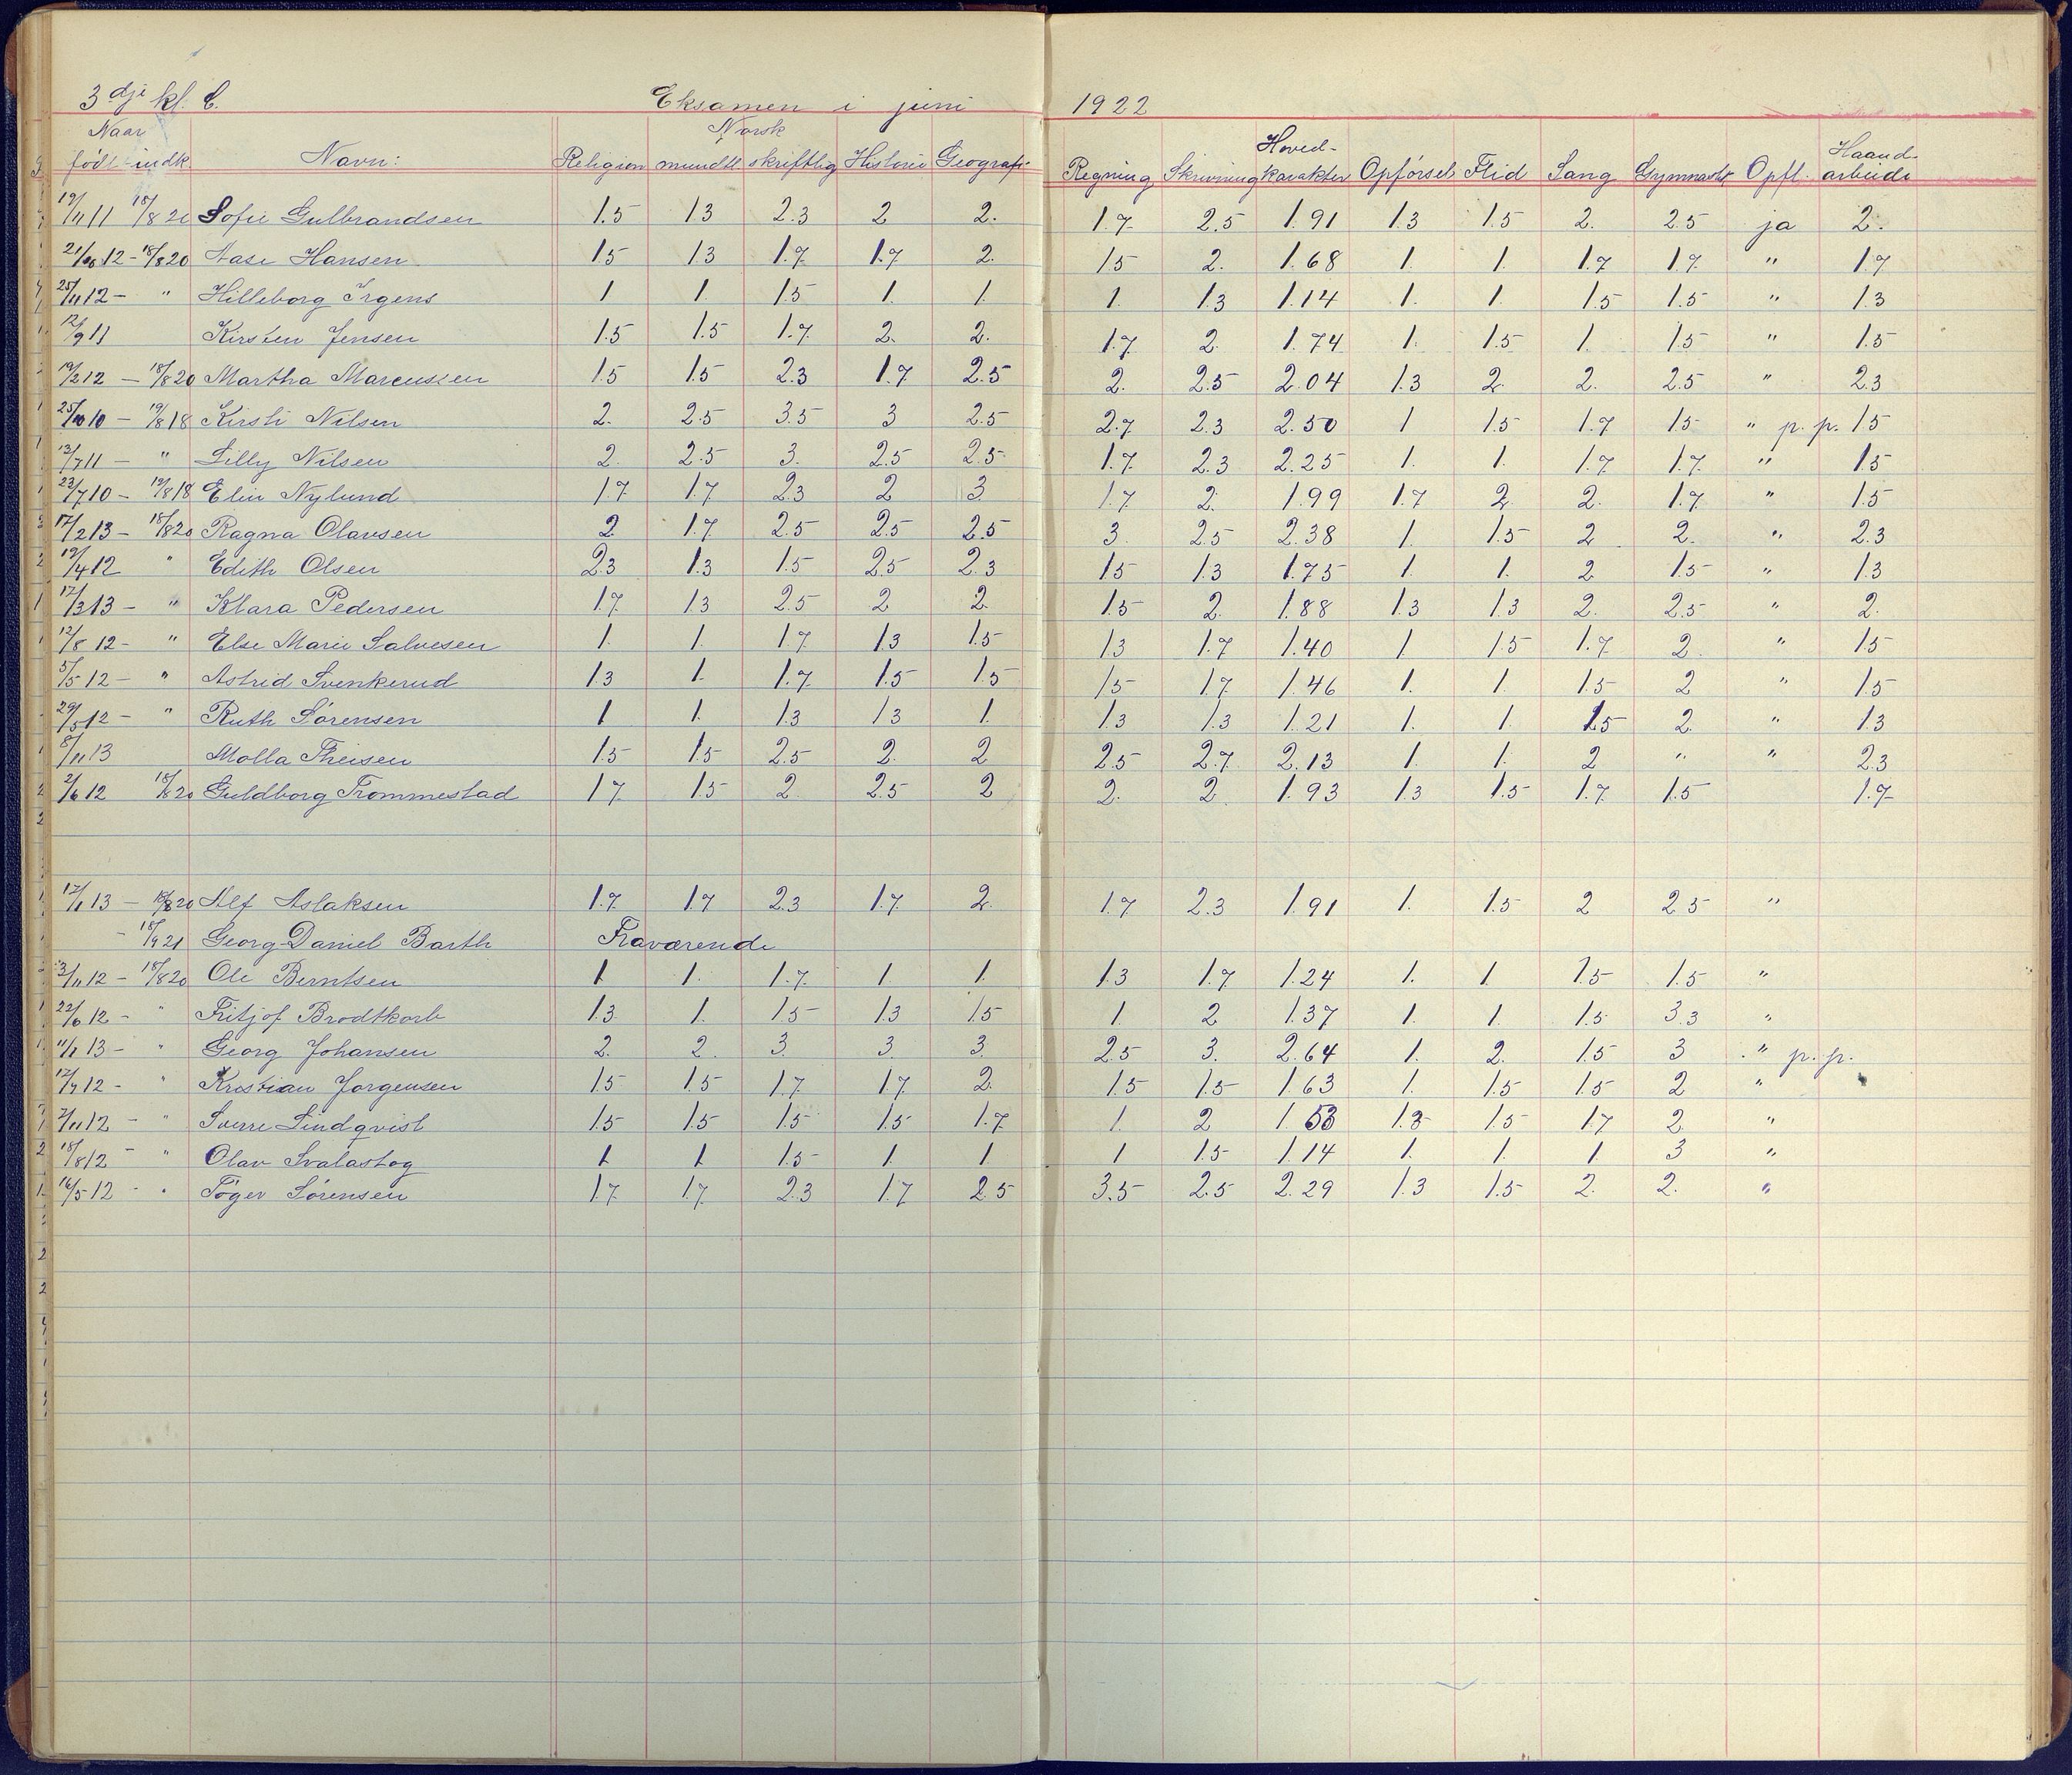 3 dje kl. C. Eksamen i juni 1922
Naar Norsk Hoved- Haand-
født - indk. Navn: Religion mundtl. skriftlig Historie Geografi Regning Skrivning karakter Opförsel Flid Sang Gymnastik Opfl. arbeide
19/11 11 18/8 20 Sofie Gulbrandsen 1.5 1.3 2.3 2 2. 1.7 2.5 1.91 1.3 1.5 2. 2.5 ja 2.
21/10 12 - 18/8 20 Aase Hansen 1.5 1.3 1.7 1.7 2. 1.5 2. 1.68 1. 1. 1.7 1.7 " 1.7
25/11 12 - " Hilleborg Irgens 1 1. 1.5 1. 1. 1. 1.3 1.14 1. 1. 1.5 1.5 " 1.3
12/9 11 Kirsten Jensen 1.5 1.5 1.7 2. 2. 1.7 2. 1.74 1. 1.5 1. 1.5 " 1.5
19/2 12 - 18/8 20 Martha Marcussen 1.5 1.5 2.3 1.7 2.5 2. 2.5 2.04 1.3 2. 2. 2.5 " 2.3
25/10 10 - 19/8 18 Kirsti Nilsen 2. 2.5 3.5 3 2.5 2.7 2.3 2.50 1 1.5 1.7 1.5 " p. p. 1.5
13/7 11 - " Lilly Nilsen 2. 2.5 3. 2.5 2.5 1.7 2.3 2.25 1. 1. 1.7 1.7 " 1.5
23/7 10 - 19/8 18 Elin Nylund 1.7 1.7 2.3 2 3 1.7 2. 1.99 1.7 2. 2. 1.7 " 1.5
17/2 13 - 18/8 20 Ragna Olavsen 2 1.7 2.5 2.5 2.5 3. 2.5 2.38 1. 1.5 2 2. " 2.3
19/4 12 " Edith Olsen 2.3 1.3 1.5 2.5 2.3 1.5 1.3 1.75 1. 1. 2 1.5 " 1.3
17/3 13 - " Klara Pedersen 1.7 1.3 2.5 2 2. 1.5 2. 1.88 1.3 1.3 2. 2.5 " 2.
12/8 12 - " Else Marie Salvesen 1. 1. 1.7 1.3 1.5 1.3 1.7 1.40 1 1.5 1.7 2. " 1.5
5/5 12 - " Astrid Svenkerud 1.3 1. 1.7 1.5 1.5 1.5 1.7 1.46 1. 1. 1.5 2 " 1.5
29/5 12 - " Ruth Sørensen 1 1. 1.3 1.3 1. 1.3 1.3 1.21 1. 1. 1.5 2. " 1.3
8/11 13 Molla Theisen 1.5 1.5 2.5 2. 2 2.5 2.7 2.13 1. 1. 2 " " 2.3
2/6 12 18/8 20 Guldborg Trommestad 1.7 1.5 2. 2.5 2 2. 2. 1.93 1.3 1.5 1.7 1.5 1.7
17/1 13 - 18/8 20 Alf Aslaksen 1.7 1.7 2.3 1.7 2. 1.7 2.3 1.91 1. 1.5 2 2.5 "
- 18/9 21 Georg Daniel Barth Fraværende
3/11 12 - 18/8 20 Ole Berntsen 1 1. 1.7 1 1. 1.3 1.7 1.24 1. 1. 1.5 1.5 "
22/6 12 - " Fritjof Brodtkorb 1.3 1. 1.5 1.3 1.5 1. 2 1.37 1. 1. 1.5 3.3 "
11/1 13 - " Georg Johansen 2. 2. 3. 3. 3. 2.5 3. 2.64 1. 2. 1.5 3 " p. p.
17/9 12 - " Kristian Jørgensen 1.5 1.5 1.7 1.7 2. 1.5 1.5 1.63 1. 1.5 1.5 2 "
7/11 12 - " Sverre Lindqvist 1.5 1.5 1.5 1.5 1.7 1. 2 1.53 1.3 1.5 1.7 2 "
18/8 12 - " Olav Svalastog 1 1 1.5 1. 1 1 1.5 1.14 1. 1. 1. 3 "
16/5 12 - " Töger Sörensen 1.7 1.7 2.3 1.7 2.5 3.5 2.5 2.29 1.3 1.5 2. 2. "